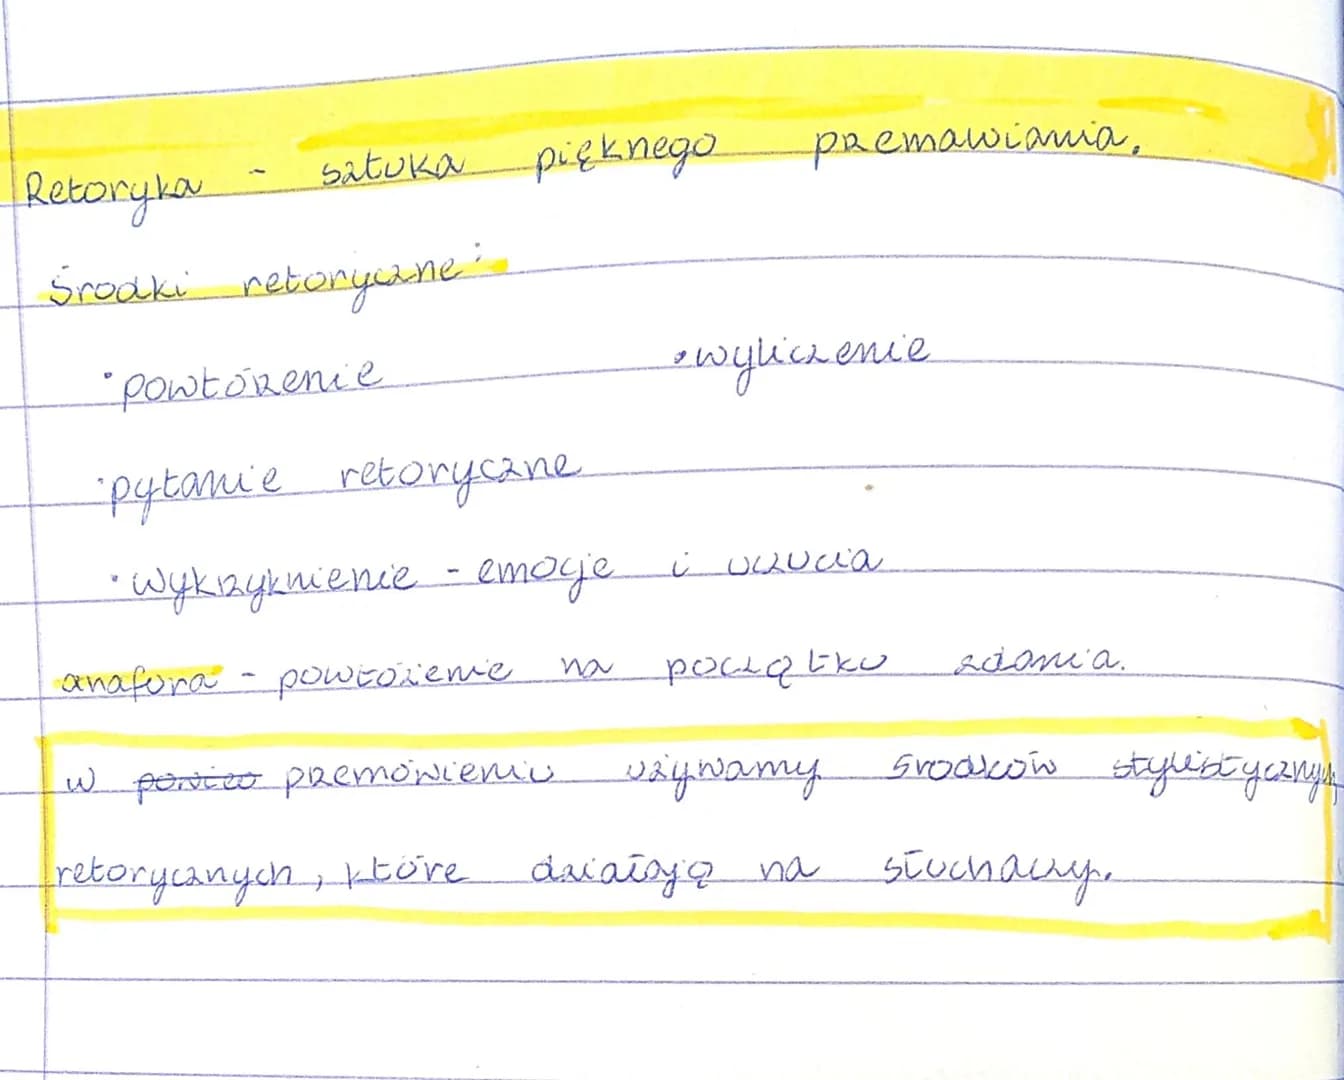 Retoryka - sztuka pięknego przemawiania.
Środki retoryczne:
• powtórzenie • wyliczenie
• pytanie retoryczne
• wykrzyknienie - emocje i uczucia
anafora - powtórzenie na początku zdania.
w przemówieniu używamy środków stylistycznych
retorycznych, które działają na słuchaczy.